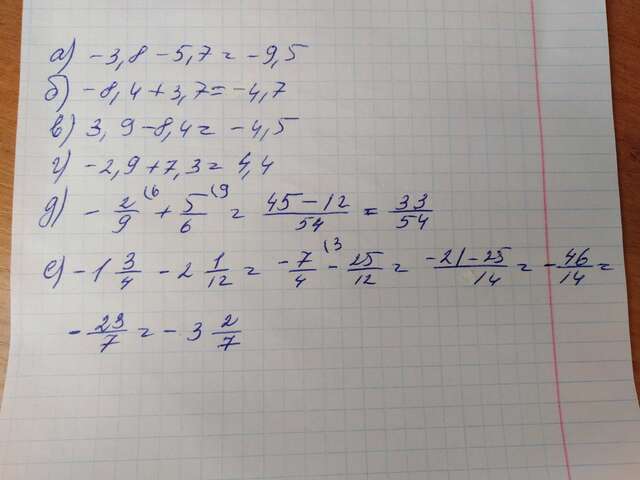 а) -3,8 - 5,7 = -9,5
б) -8,4 + 3,7 = -4,7
в) 3,9 - 8,4 = -4,5
г) -2,9 + 7,3 = 4,4
д) - 2/9 (6 + 5/6 (9 = 45 - 12/54 = 33/54
е) -1 3/4 - 2 1/12 = -7/4 (3 - 25/12 = -21 - 25/14 = - 46/14 =
- 23/7 = - 3 2/7